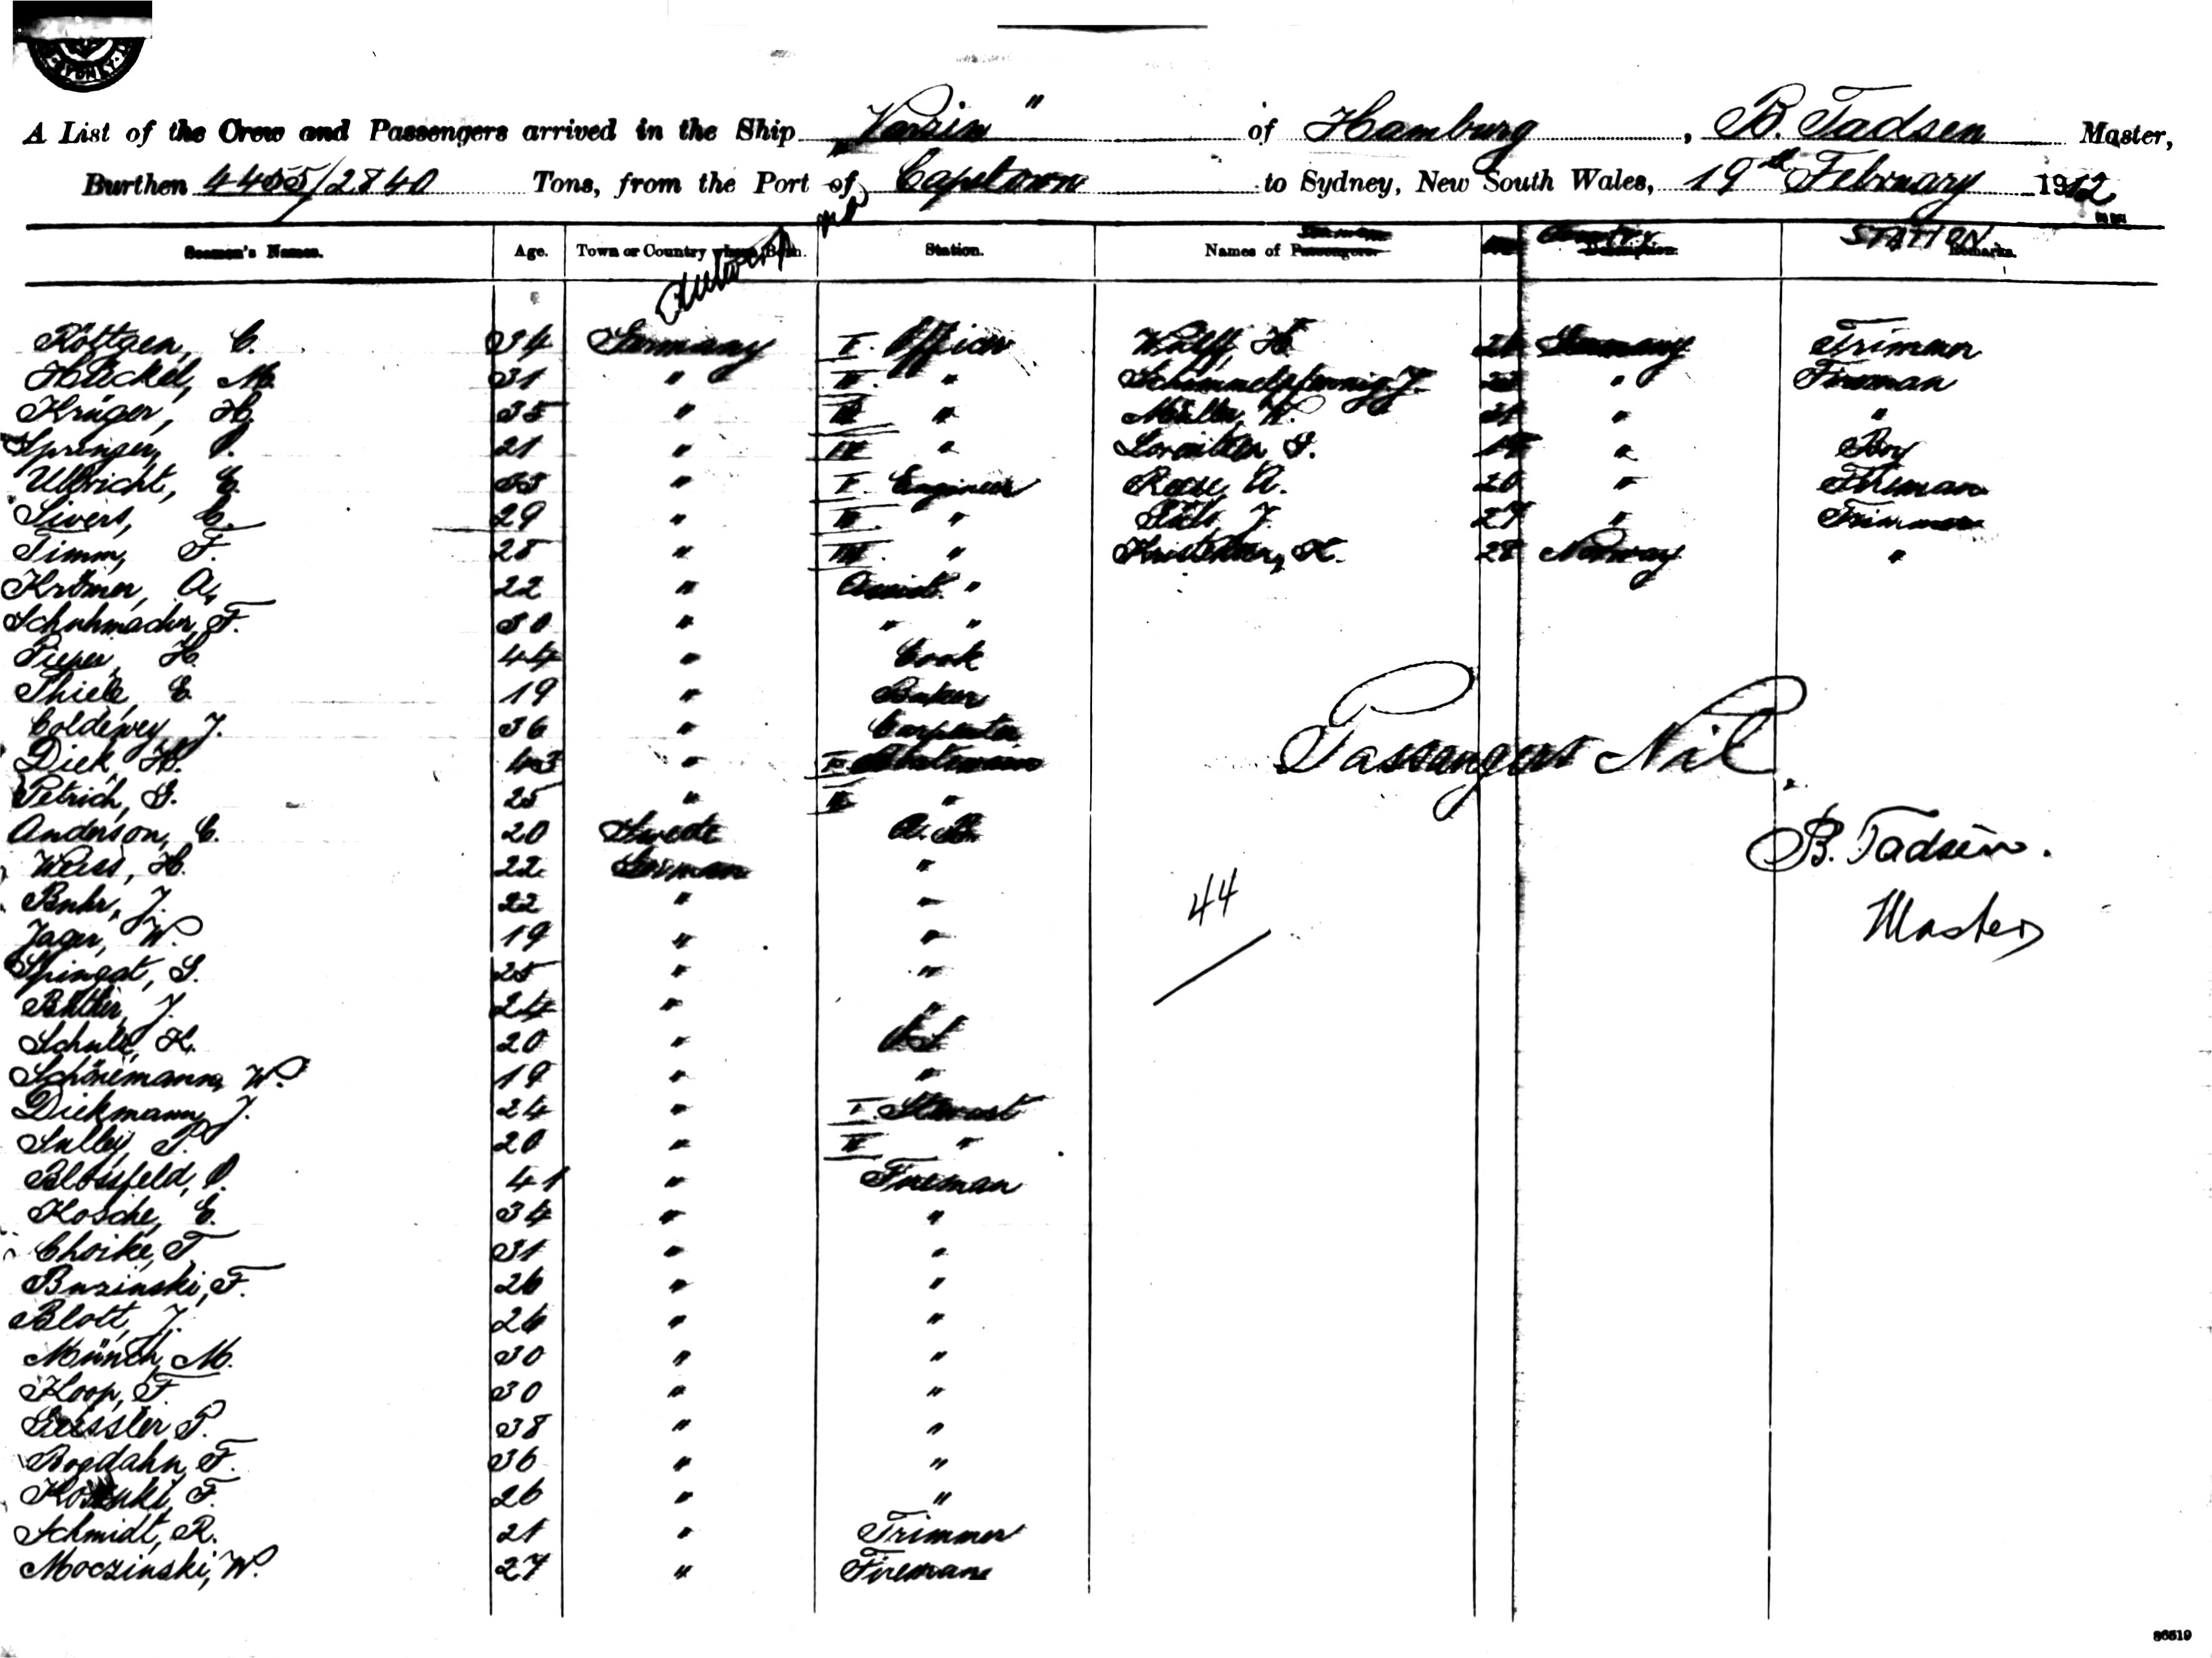 SYDNEY
A List of the Crew and Passengers arrived in the Ship Varzin " of Hamburg, B. Tadsen Master,
Burthen 4455/2840 Tons, from the Port of Capetown to Sydney, New South Wales, 19th February 1912
Seamen's Names. Age. Town or Country where Born. Station. Names of Passengers STATION Remarks.
Röttgen, C. 34 Germany I. Officer Wulff, H. Germany Trimmer
Haeckel, M. 31 " II. " Schimmelpfennig, J. " Fireman
Krüger, H. 35 " III " Müller, W. 31 " "
Springer, O. 21 " IV " " Boy
Ulbricht, E. 33 " I. Engineer Reese, A. 20 " Fireman
Sivers, C. 29 " II. " J. 27 " Trimmer
Timm, F. 28 " III. " K. 28 Norway "
Krömer, A. 22 " Assist. "
Schuhmacher, F. 30 " " "
Pieper, H. 44 " Cook
Thiele, E. 19 " Baker
Coldewey, J. 36 " Carpenter
Dick, H. 43 " I.
Petrich, G. 25 " II "
Anderson, C. 20 Swede A. B.
Weiss, H. 22 German "
Buhr, J. 22 " "
Jager, W. 19 " "
Spingat, G. 25 " "
J. 24 " "
Schulz, K. 20 "
Schünemann, W. 19 " "
Diekmann, J. 24 " I. Stewart
Salley, P. 20 " II "
Blossfeld, O. 41 " Fireman
Kosche, E. 34 " "
Choike, T. 31 " "
Buzinski, F. 26 " "
Blott, J. 26 " "
Münch, M. 30 " "
Koop, F. 30 " "
Geissler P. 38 " "
Bogdahn, F. 36 " "
F. 26 " "
Schmidt, R. 21 " Trimmer
Moczinski, W. 27 " Fireman
Passangers Nil.
B. Tadsen.
Master
44
86519